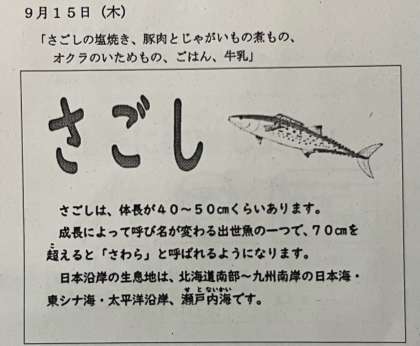 ９月１５日（木）
「さごしの塩焼き、豚肉とじゃがいもの煮もの、
オクラのいためもの、ごはん、牛乳」
さごし
さごしは、体長が４０～５０㎝くらいあります。
成長によって呼び名が変わる出世魚の一つで、７０㎝を
こ
超えると「さわら」と呼ばれるようになります。
日本沿岸の生息地は、北海道南部～九州南岸の日本海・
せとないかい
東シナ海・太平洋沿岸、瀬戸内海です。